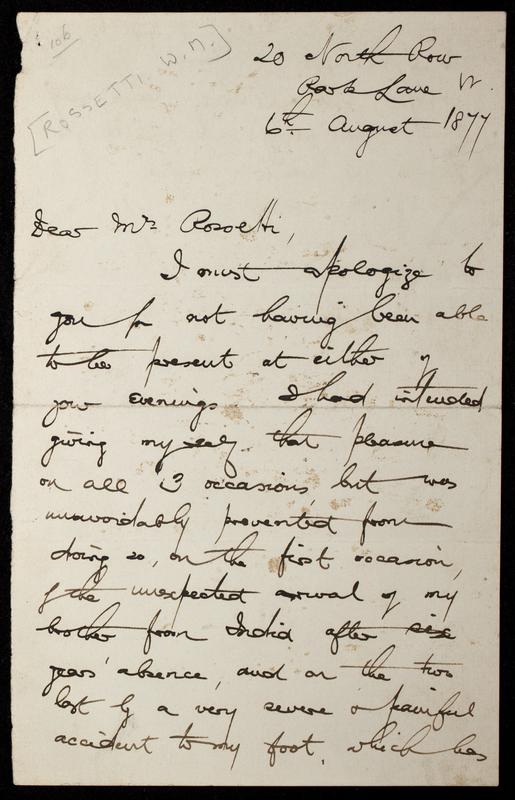 106
[ROSSETTI, W. M.]
20 North Row
Park Lane W.
6th August 1877
Dear Mrs Rossetti,
I must apologize to
you for not having been able
to be present at either of
your evenings. I had intended
giving myself that pleasure
on all 3 occasions, but was
unavoidably prevented from
doing so, on the first occasion,
by the unexpected arrival of my
brother from India after six
years' absence, and on the two
last by a very severe & painful
accident to my foot, which has